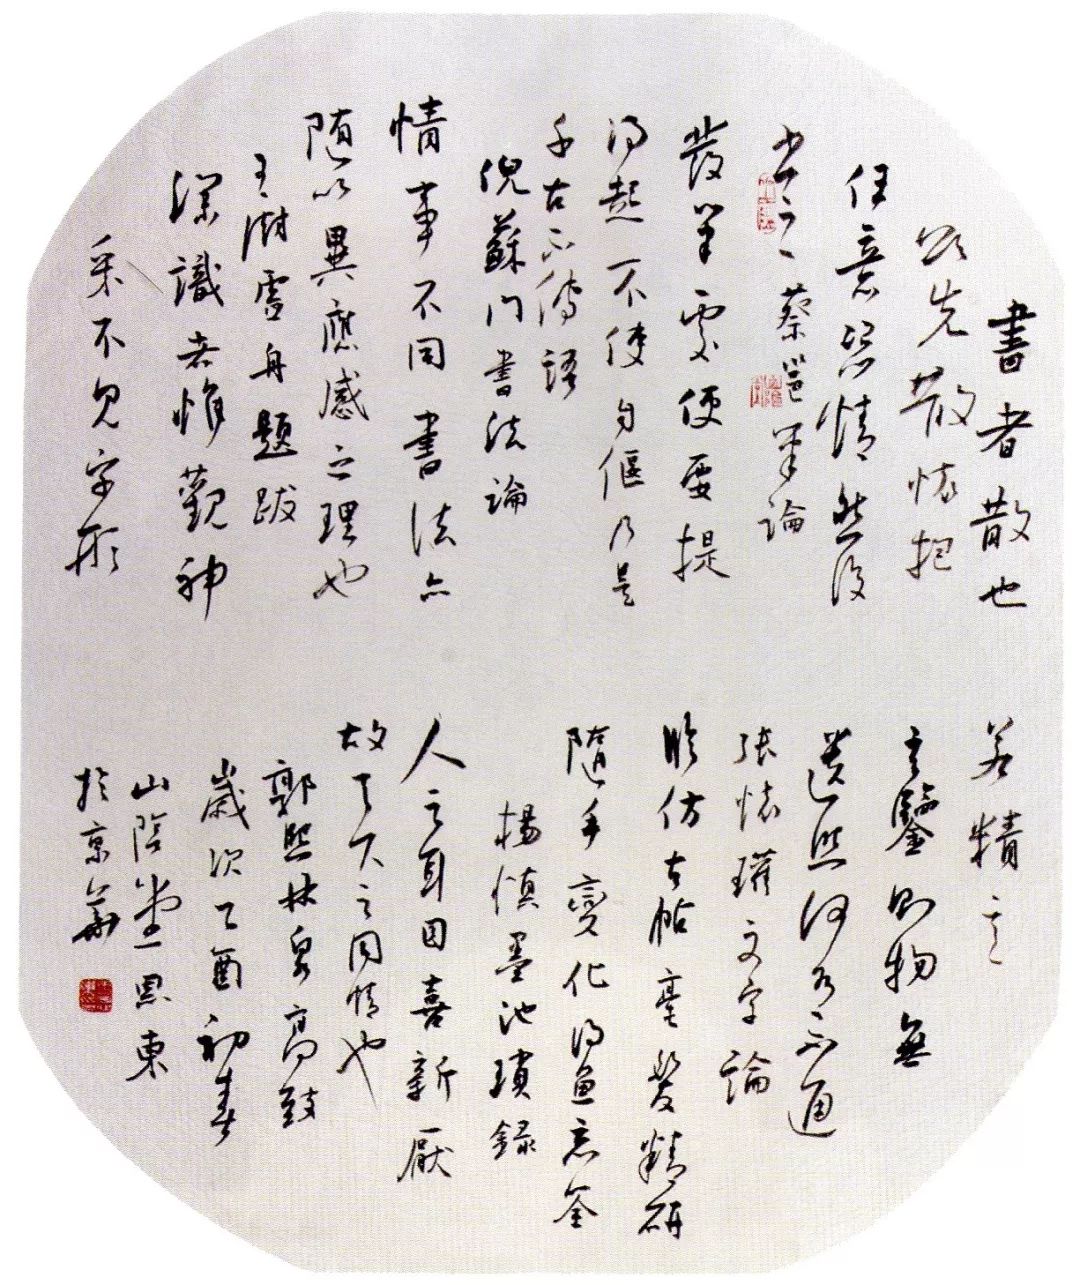 書者散也
欲先散懷抱
任意恣情然後
書之 蔡邕筆論
發筆處便要提
得起不使自偃乃是
千古不傳語
倪蘇門書法論
情事不同書法亦
随以異應感之理也
王澍虛舟題跋
深識者惟觀神
采不見字形
若精意
玄鑒則物無
遺照何有不通
張懷瓘文字論
臨仿古帖毫髮精研
隨手變化得魚忘筌
楊慎墨池瑣錄
人之耳目喜新厭
故天下之同情也
郭熙林泉高致
歲次乙酉初春
山陰思東
於京華